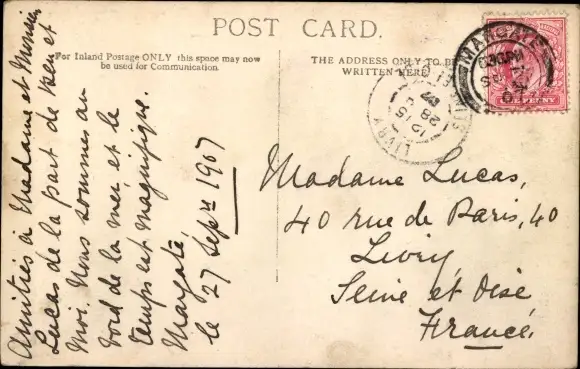 POST CARD.
For Inland Postage ONLY this space may now
be used for Communication.
THE ADDRESS ONLY TO BE
WRITTEN HERE
Amitiés à Madame et Monsieur
Lucas de la part de Ken et
Moi. Nous sommes au
bord de la mer et le
temps est magnifique.
Margate
le 27 Sept 1907
Madame Lucas,
40 rue de Paris, 40
Livry
Seine et Oise
France.
MARGATE
ONE PENNY
LIVRY